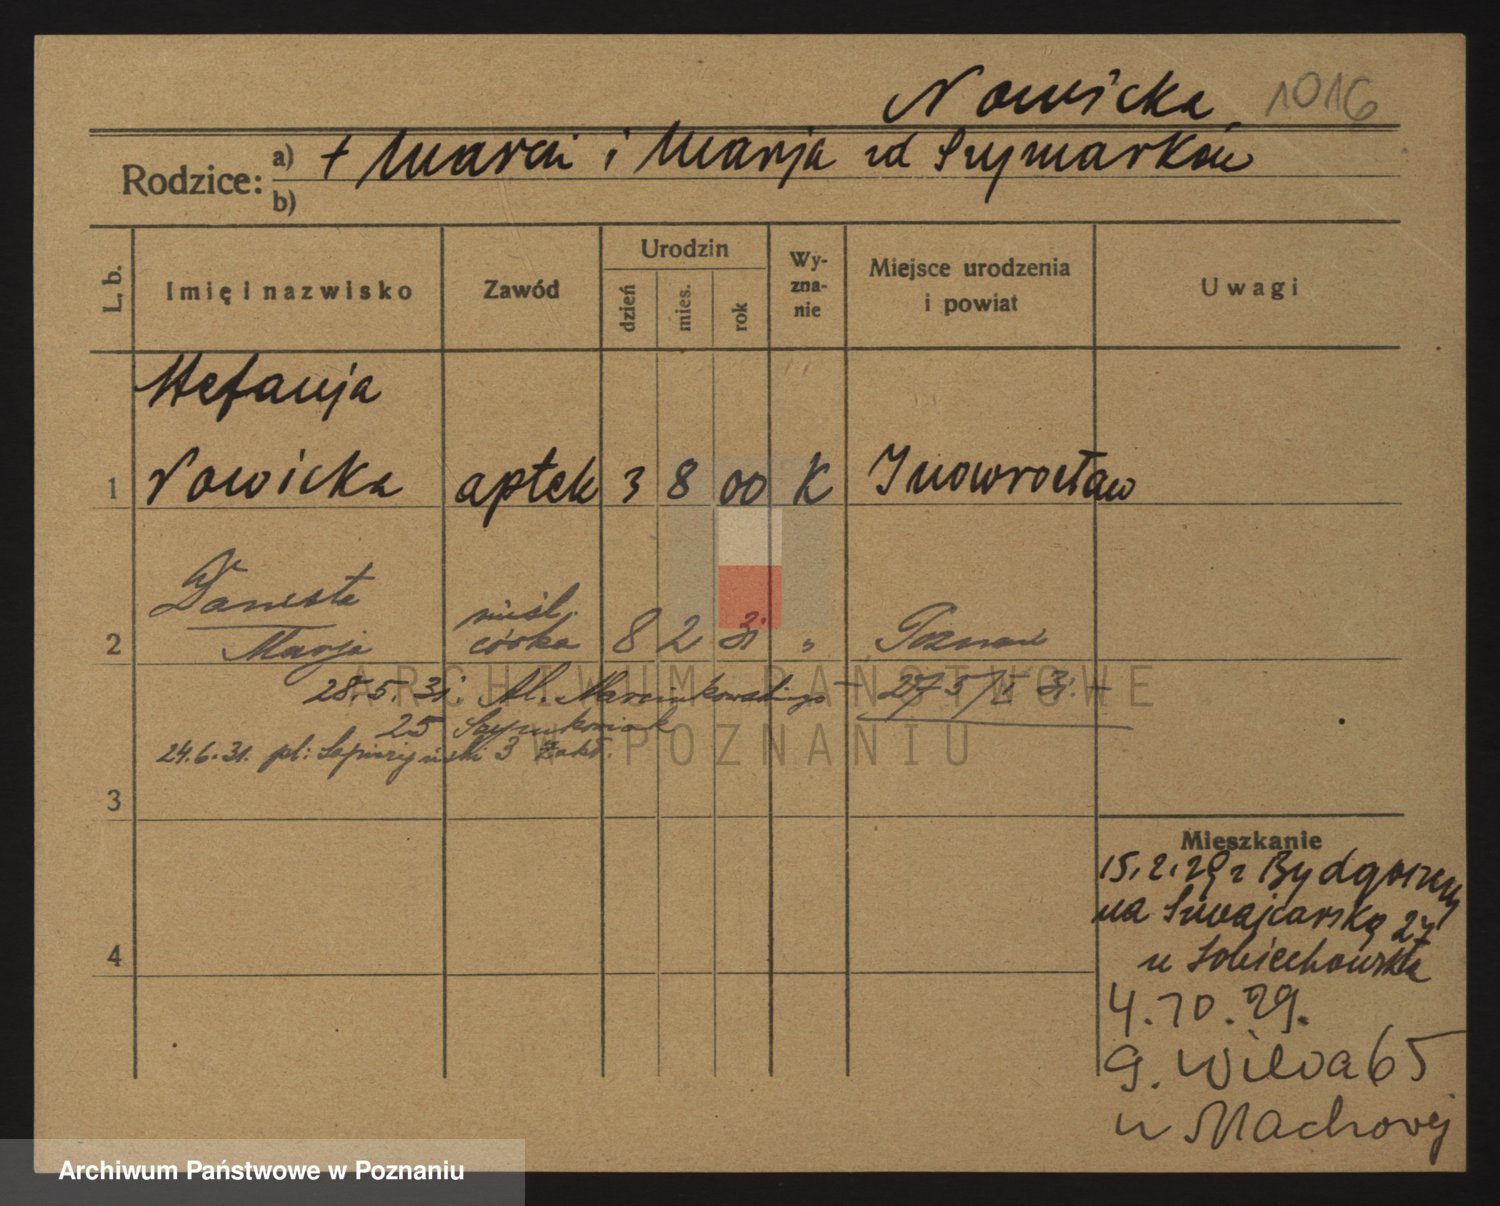 Nowicka 1016
Rodzice: a) + Marcin i Marja zd Szymarków
b)
L. b. Imię i nazwisko Zawód Urodzin dzień mies. rok Wyznanie Miejsce urodzenia i powiat Uwagi
Stefanja
1 Nowicka aptek 3 8 00 K Inowrocław
Danuta nieśl.
2 Marja córka 8 2 31 " Poznań
28.5.31. Al. Marcinkowskiego – 27 5 31 –
25 Szymkowiak
24.6.31. pl: 3 Zakł.
3
Mieszkanie
15.2.29 z Bydgoszczy
na Szwajcarską 27
4 u Sobiechowska
4.10.29.
G. Wilda 65
u Machovej
ARCHIWUM PAŃSTWOWE
W POZNANIU
Archiwum Państwowe w Poznaniu